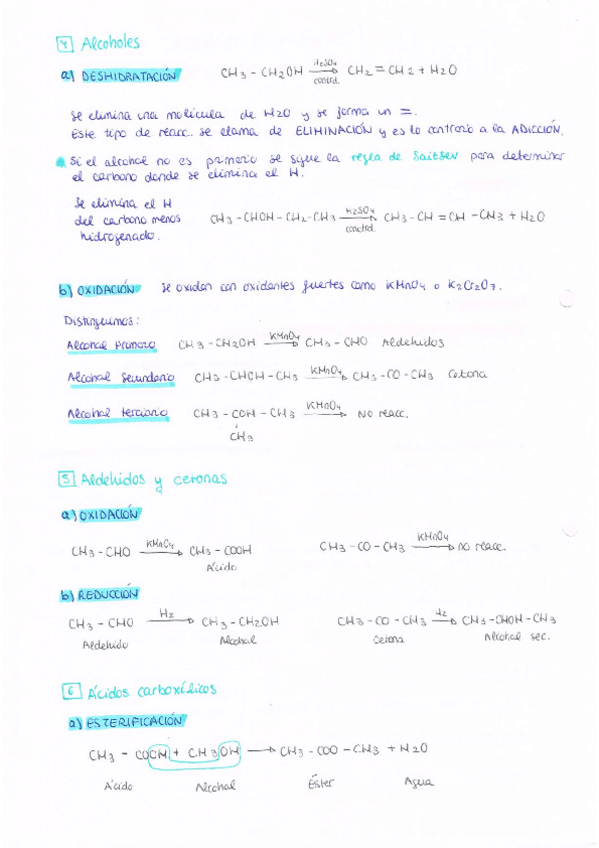 4 Alcoholes
a) DESHIDRATACIÓN CH3 - CH2OH H2SO4 contrd. CH2 = CH2 + H2O
Se elimina una molécula de H2O y se forma un =.
Este tipo de reacc. se llama de ELIMINACIÓN y es lo contrario a la ADICCIÓN.
Si el alcohol no es primario se sigue la regla de Saitsev para determinar
el carbono donde se elimina el H.
Se elimina el H
del carbono menos
hidrogenado.
CH3 - CHOH - CH2 - CH3 H2SO4 contrd. CH3 - CH = CH - CH3 + H2O
b) OXIDACIÓN Se oxidan con oxidantes fuertes como KMnO4 o K2Cr2O7.
Distinguimos:
Alcohol primario CH3 - CH2OH KMnO4 CH3 - CHO Aldehidos
Alcohol secundario CH3 - CHOH - CH3 KMnO4 CH3 - CO - CH3 Cetona
Alcohol terciario CH3 - COH - CH3 KMnO4 NO reacc.
CH3
5 Aldehidos y cetonas
a) OXIDACIÓN
CH3 - CHO KMnO4 CH3 - COOH CH3 - CO - CH3 KMnO4 no reacc.
Ácido
b) REDUCCIÓN
CH3 - CHO H2 CH3 - CH2OH CH3 - CO - CH3 H2 CH3 - CHOH - CH3
Aldehido Alcohol Cetona Alcohol sec.
6 Ácidos carboxílicos
a) ESTERIFICACIÓN
CH3 - COOH + CH3OH CH3 - COO - CH3 + H2O
Ácido Alcohol Éster Agua